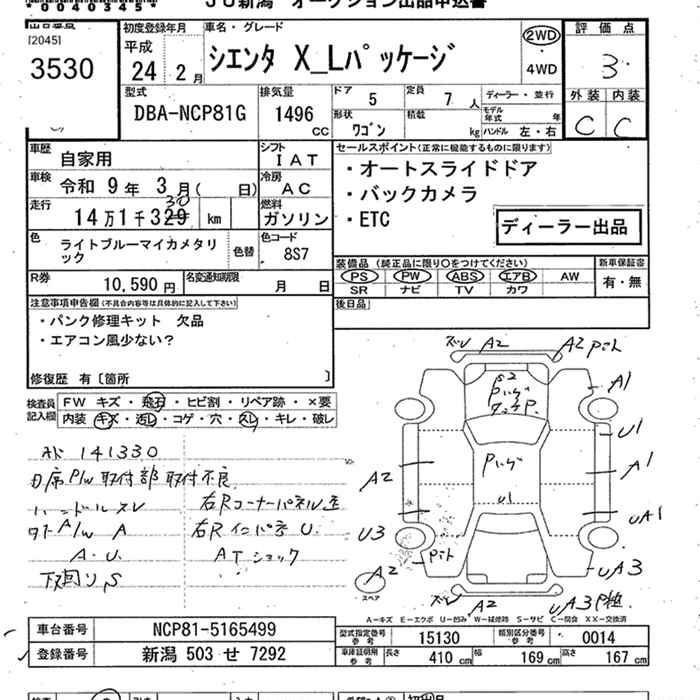 00040345
JU新潟 オークション出品申込書
[20451]
3530
初度登録年月
平成
24年 2月
車名・グレード
シエンタ X_Lパッケージ
2WD
4WD
評価点
3
外装 内装
C C
型式
DBA-NCP81G
排気量
1496
CC
ドア
5
定員
7 人
ディーラー・並行
形状
ワゴン
積載
kg
モデル年式 年
ハンドル 左・右
車歴
自家用
シフト
IAT
車検
令和 9年 3月( 日)
冷房
AC
走行
14万1千329 km
30
燃料
ガソリン
色
ライトブルーマイカメタリック
色替
色コード
8S7
R券
10,590円
名変通知期限
月 日
セールスポイント(正常に機能するものに限ります)
・オートスライドドア
・バックカメラ
・ETC
ディーラー出品
装備品(純正品に限り○をつけてください)
新車保証書
PS PW ABS エアB AW
SR ナビ TV カワ
有・無
後日品
注意事項申告欄(不具合内容等は具体的に記入して下さい)
・パンク修理キット 欠品
・エアコン風少ない?
修復歴 有〔箇所 〕
検査員記入欄
FW キズ・飛石・ヒビ割・リペア跡・×要
内装・キズ・汚レ・コゲ・穴・スレ・キレ・破レ
メ 141330
D席P/W取付部取付不良
ハンドルスレ
右Rコーナーパネル歪
タイヤ/W A
右RインパネU.
A.U.
ATショック
下回りS
ズレ A2
A2 Pハト
A1
U1
A1
uA1
uA3
uA3 P極
A2
ズレ
A2
Pハト
U3
A2
S2
U1
スペア
A-キズ E-エクボ U-凹み W-補修跡 S-サビ C-腐食 XX-交換済
車台番号
NCP81-5165499
登録番号
新潟 503 せ 7292
型式指定番号
参考
15130
類別区分番号
参考
0014
車庫証明用
参考
長さ
410 cm
幅
169 cm
高さ
167 cm